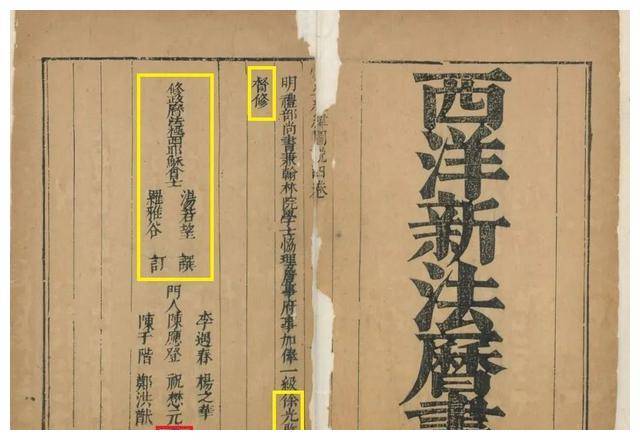 西洋新法曆書
圖說四卷
明禮部尚書兼翰林院學士協理詹事府事加俸一級徐光啟
督修
修政曆法極西耶穌會士
湯若望 撰
羅雅谷 訂
李遇春 楊之華
門人陳應登 祝懋元
陳于階 鄭洪猷